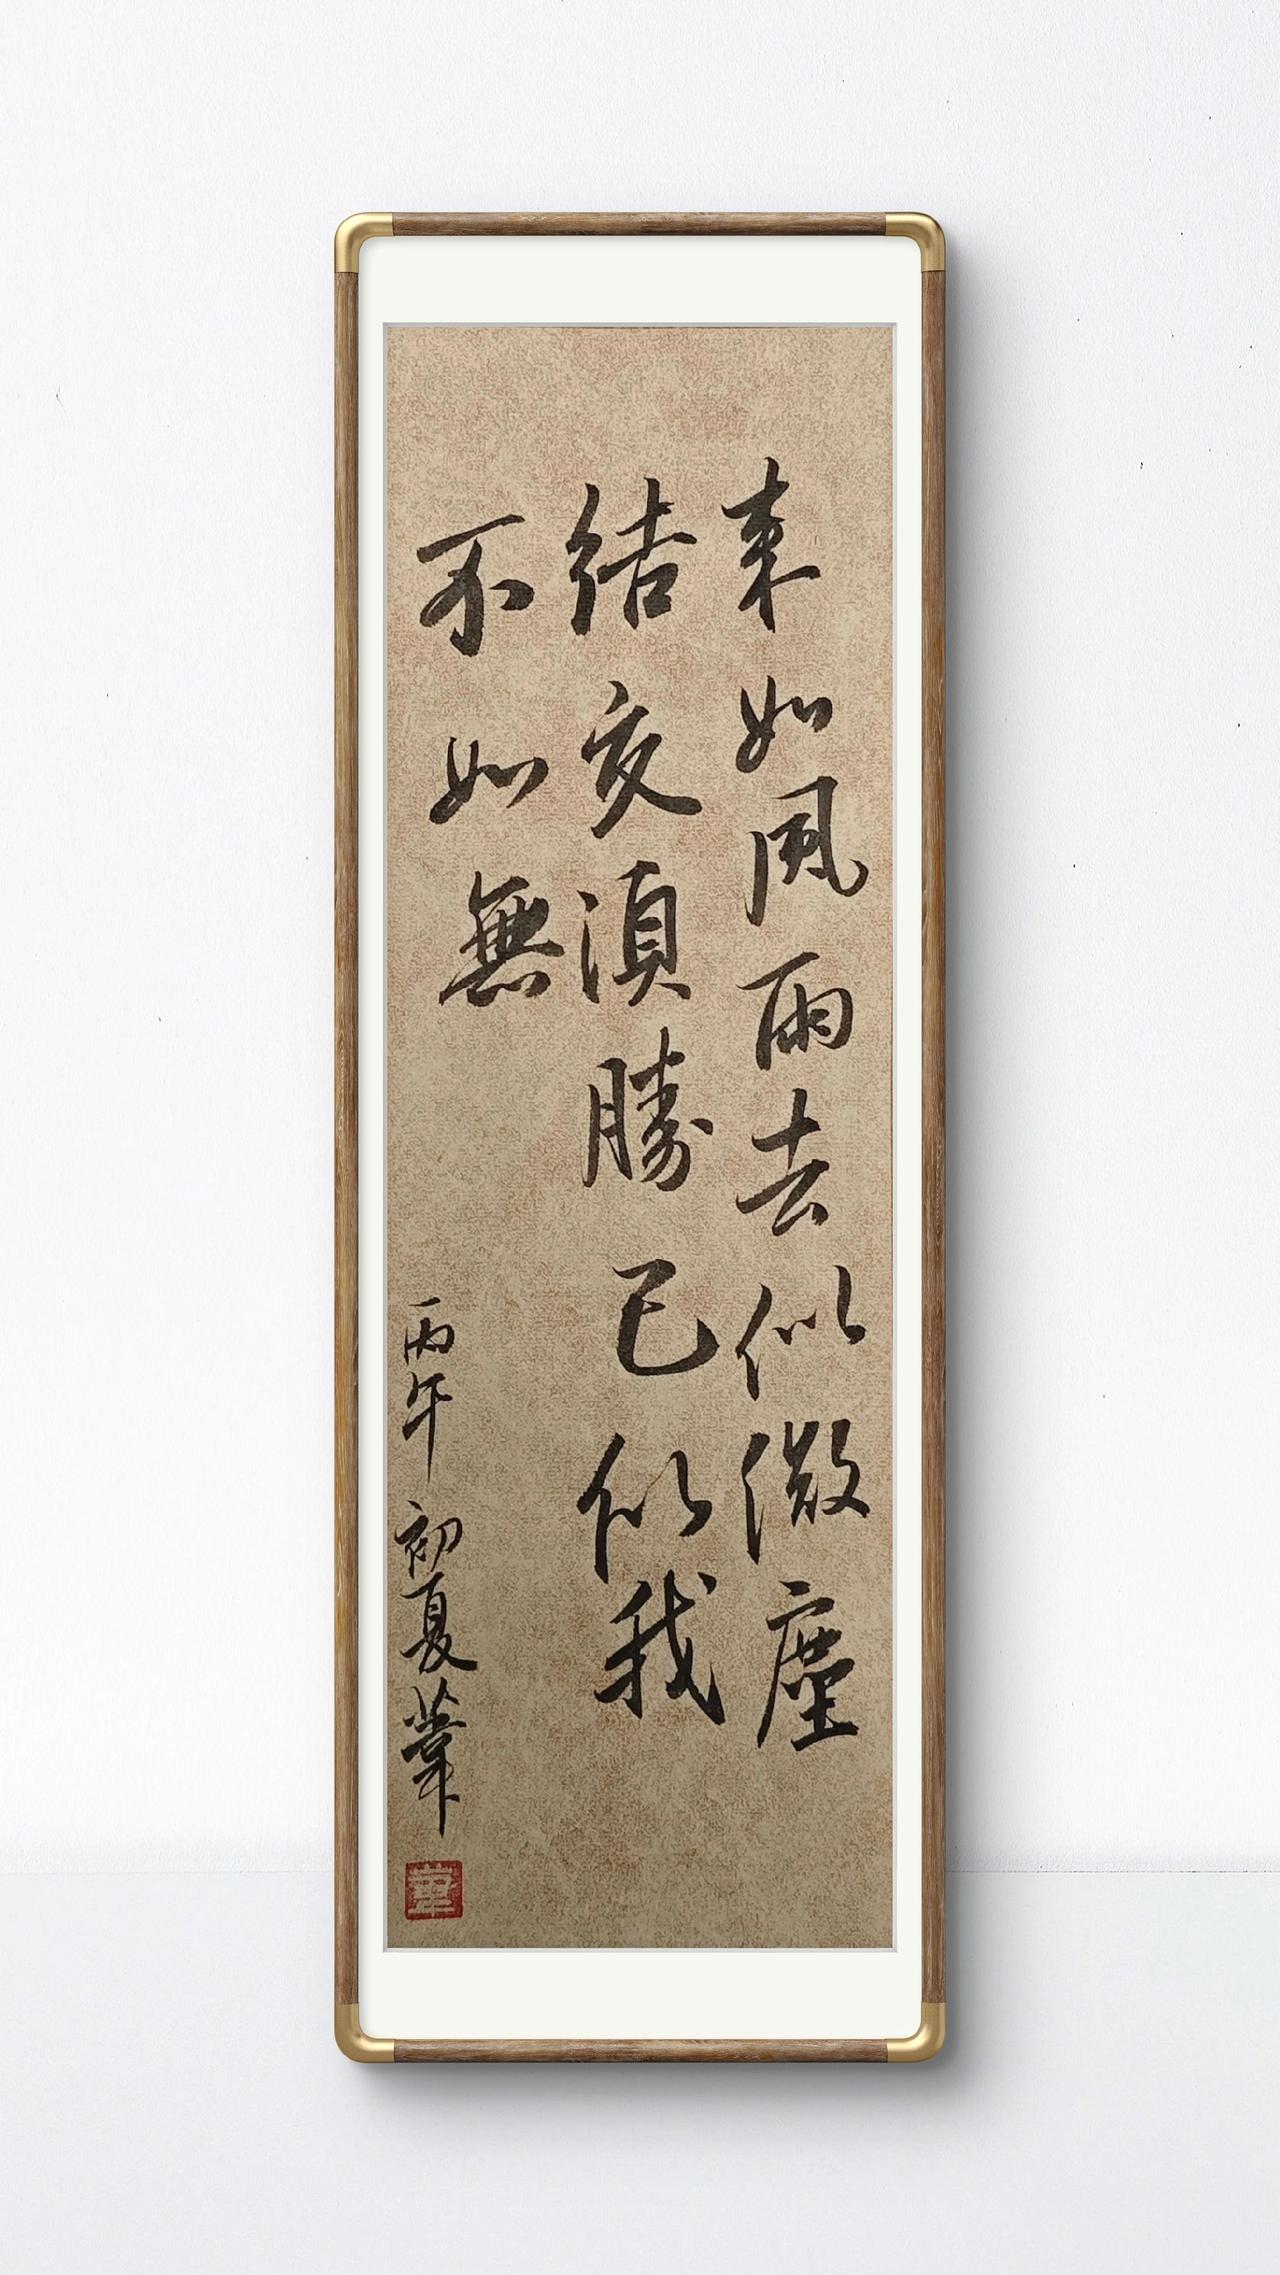 来如風雨去似微塵
結交須勝己似我
不如無
丙午初夏